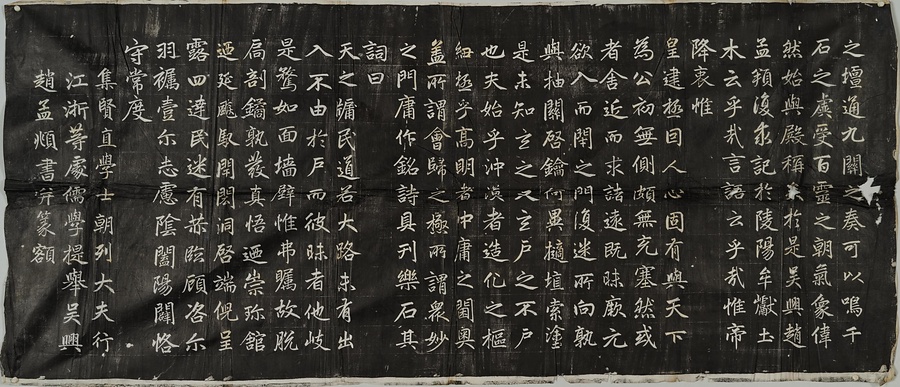 之壇通九關之奏可以鳴千
石之虞受百靈之朝氣象偉
然始與殿稱於是吳興趙
孟頫復求記於陵陽牟巘土
木云乎哉言語云乎哉惟帝
降衷惟
皇建極曰人心固有與天下
為公初無側頗無充塞然或
者舍近而求諸遠既昧厥元
欲入而閉之門復迷所向孰
與抽關啓鑰何異擿埴索塗
是未知玄之又玄戶之不戶
也夫始乎沖漠者造化之樞
細極乎高明者中庸之閫奧
盖所謂會歸之極所謂衆妙
之門庸作銘詩具刊樂石其
詞曰
天之牖民道若大路未有出
入不由於戶而彼昧者他岐
是騖如面墙壁惟弗屬故脫
扃剖鐍孰發真悟迺崇珎館
迺延飈馭閈閎洞啓端倪呈
露四達民迷有恭臨顧咨尔
羽襹壹尔志慮陰闔陽闢恪
守常度
集賢直學士朝列大夫行
江浙等處儒學提舉吳興
趙孟頫書并篆額